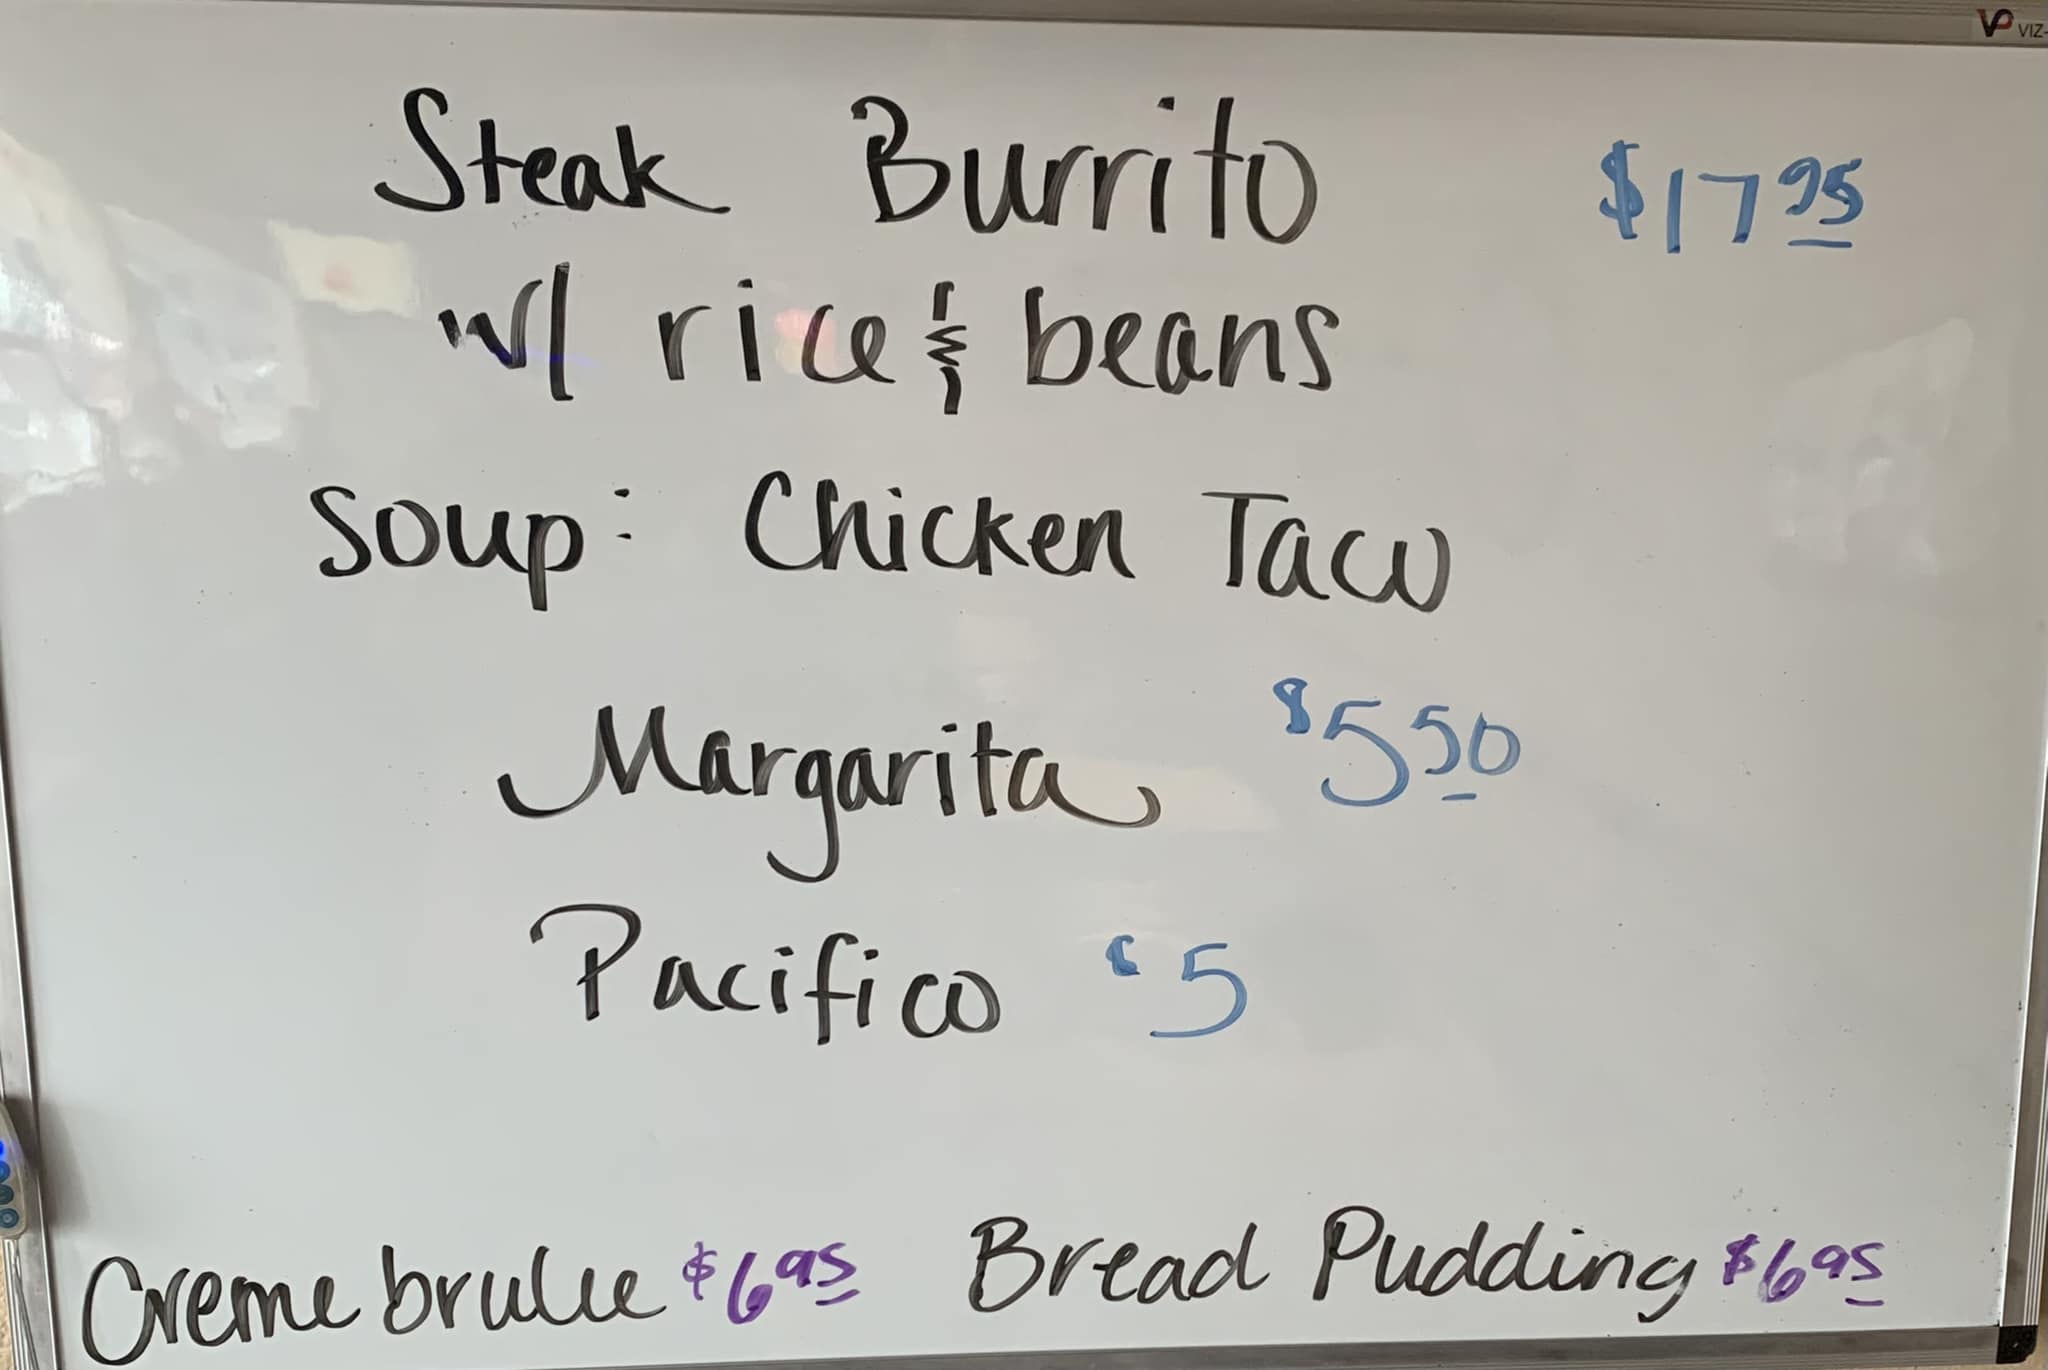 VP VIZ-
Steak Burrito $17 95
w/ rice & beans
Soup: Chicken Taco
Margarita $5 50
Pacifico $5
Creme brulee $6 95 Bread Pudding $6 95